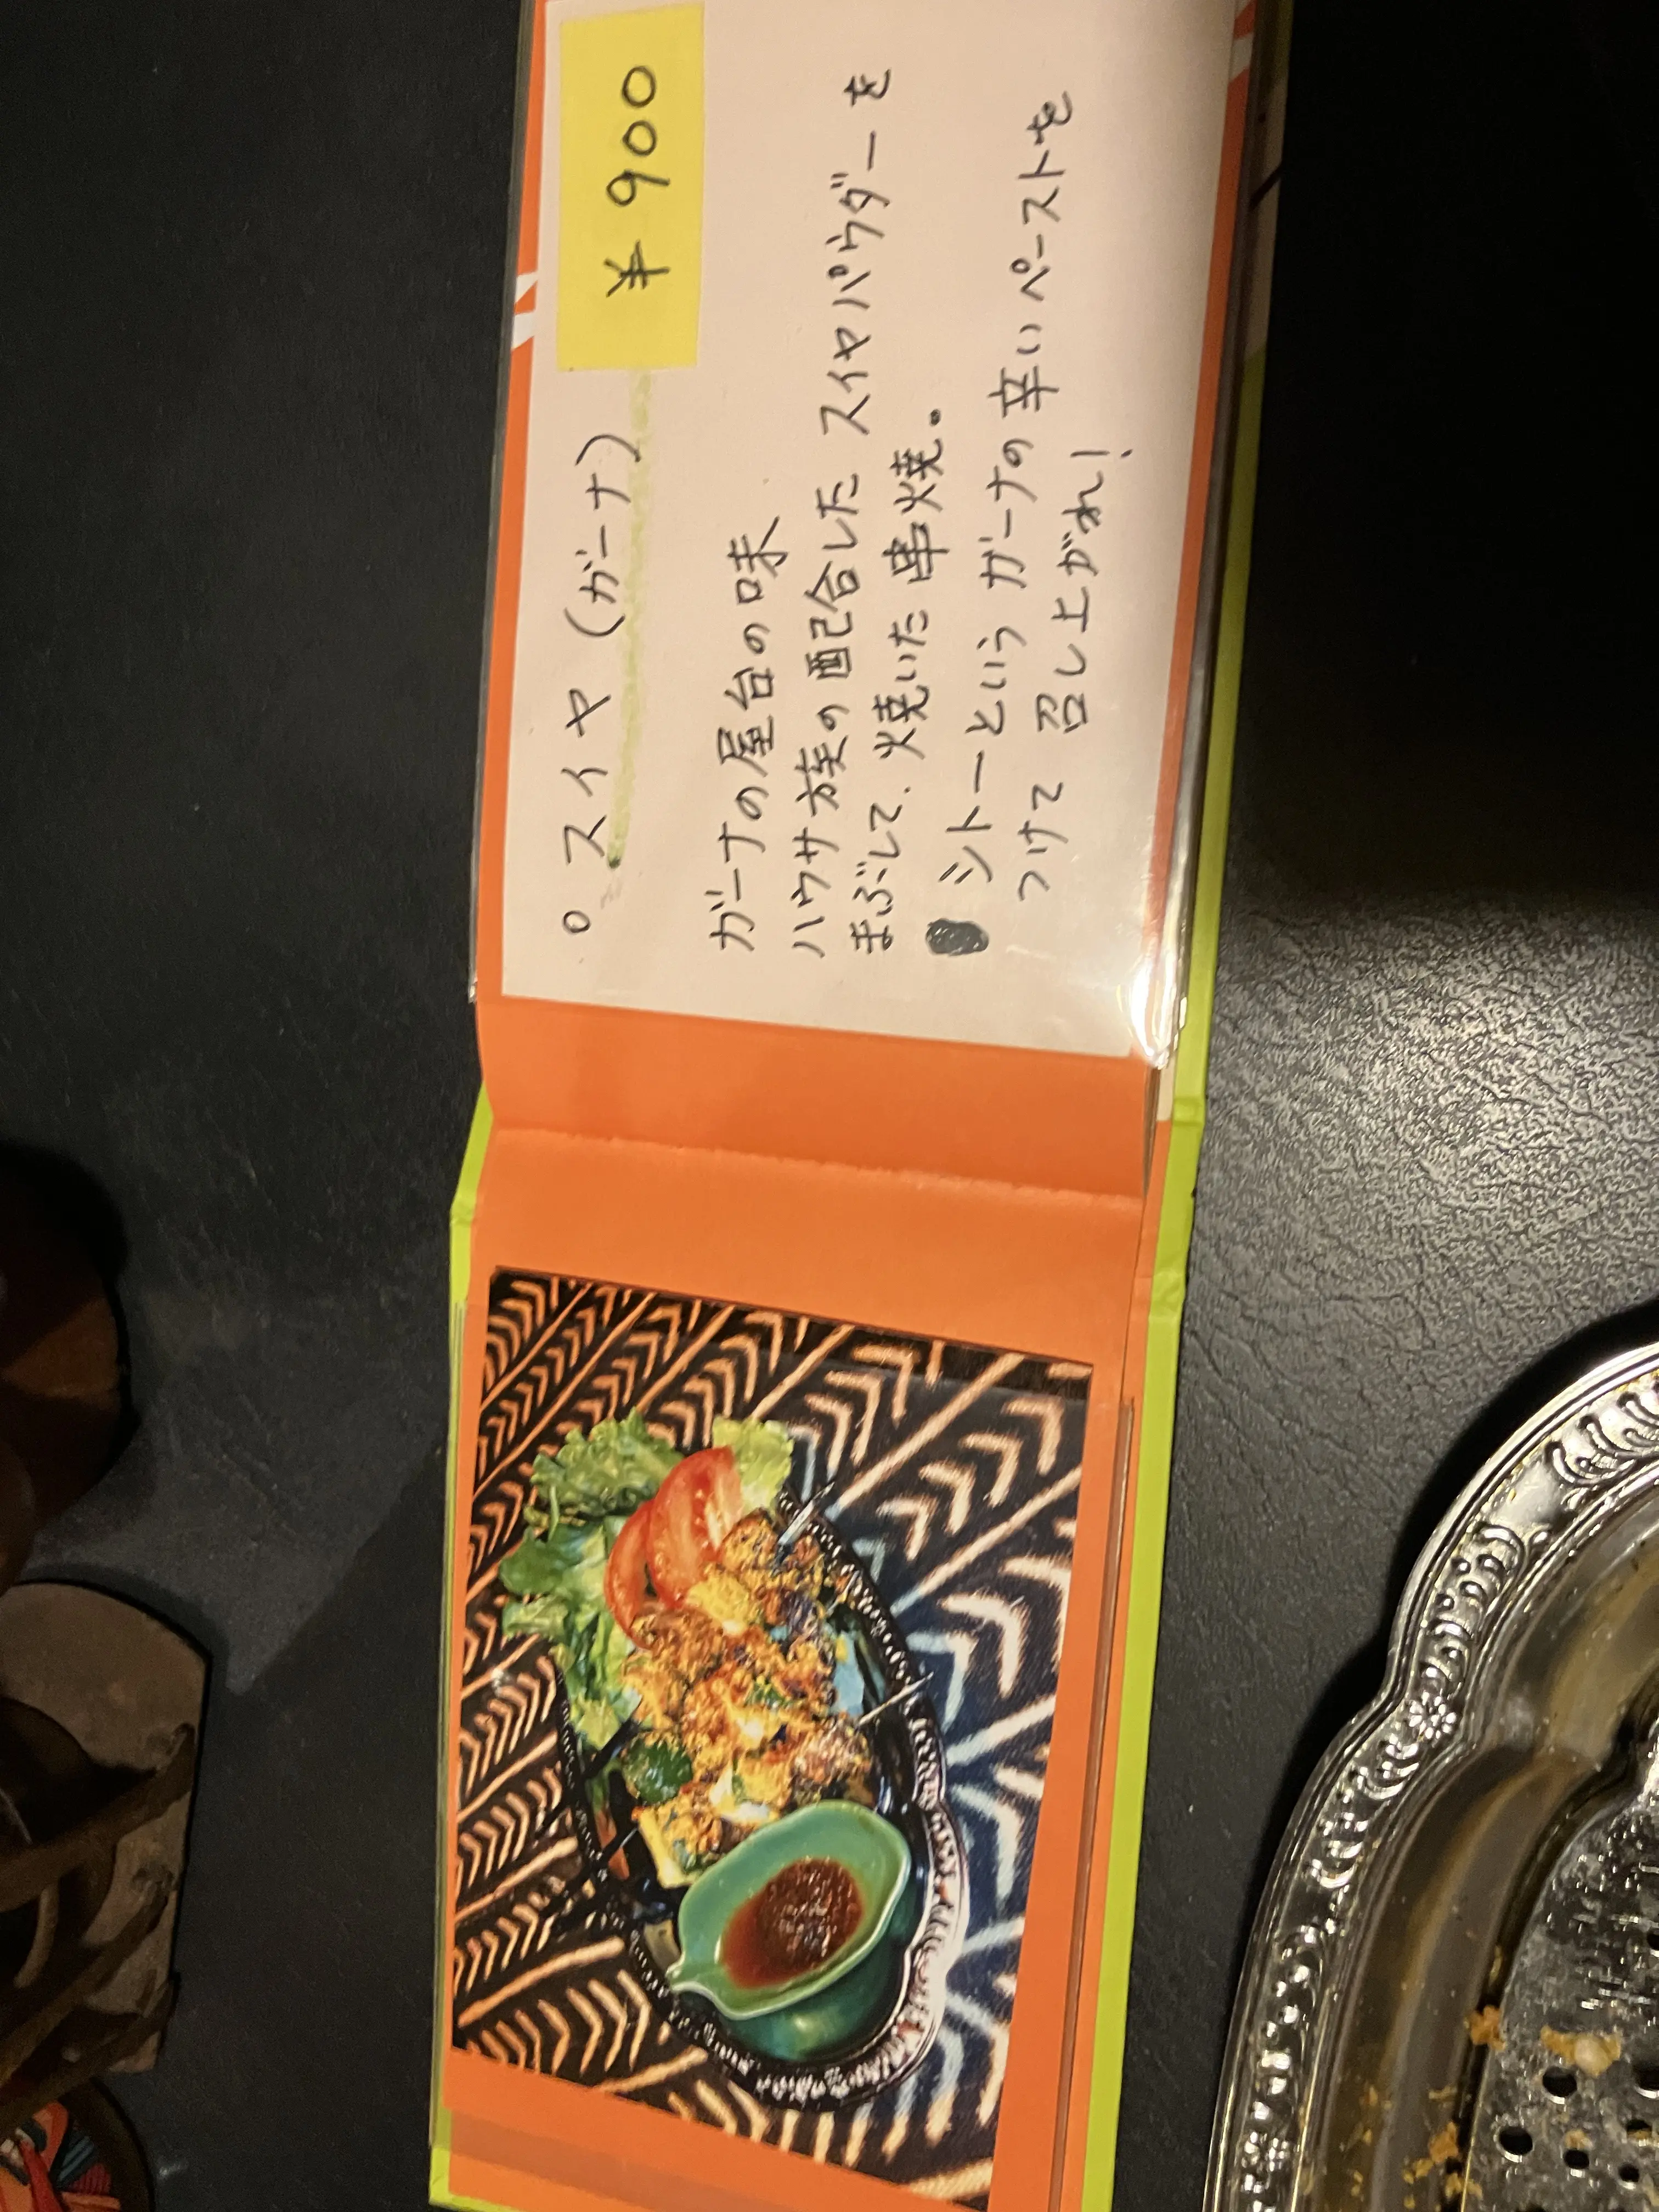 ○ スイヤ (ガーナ) ¥900
ガーナの屋台の味
ハウサ族の配合した スイヤパウダーを
まぶして、焼いた 串焼。
シトーという ガーナの 辛いペーストを
つけて 召し上がれ!